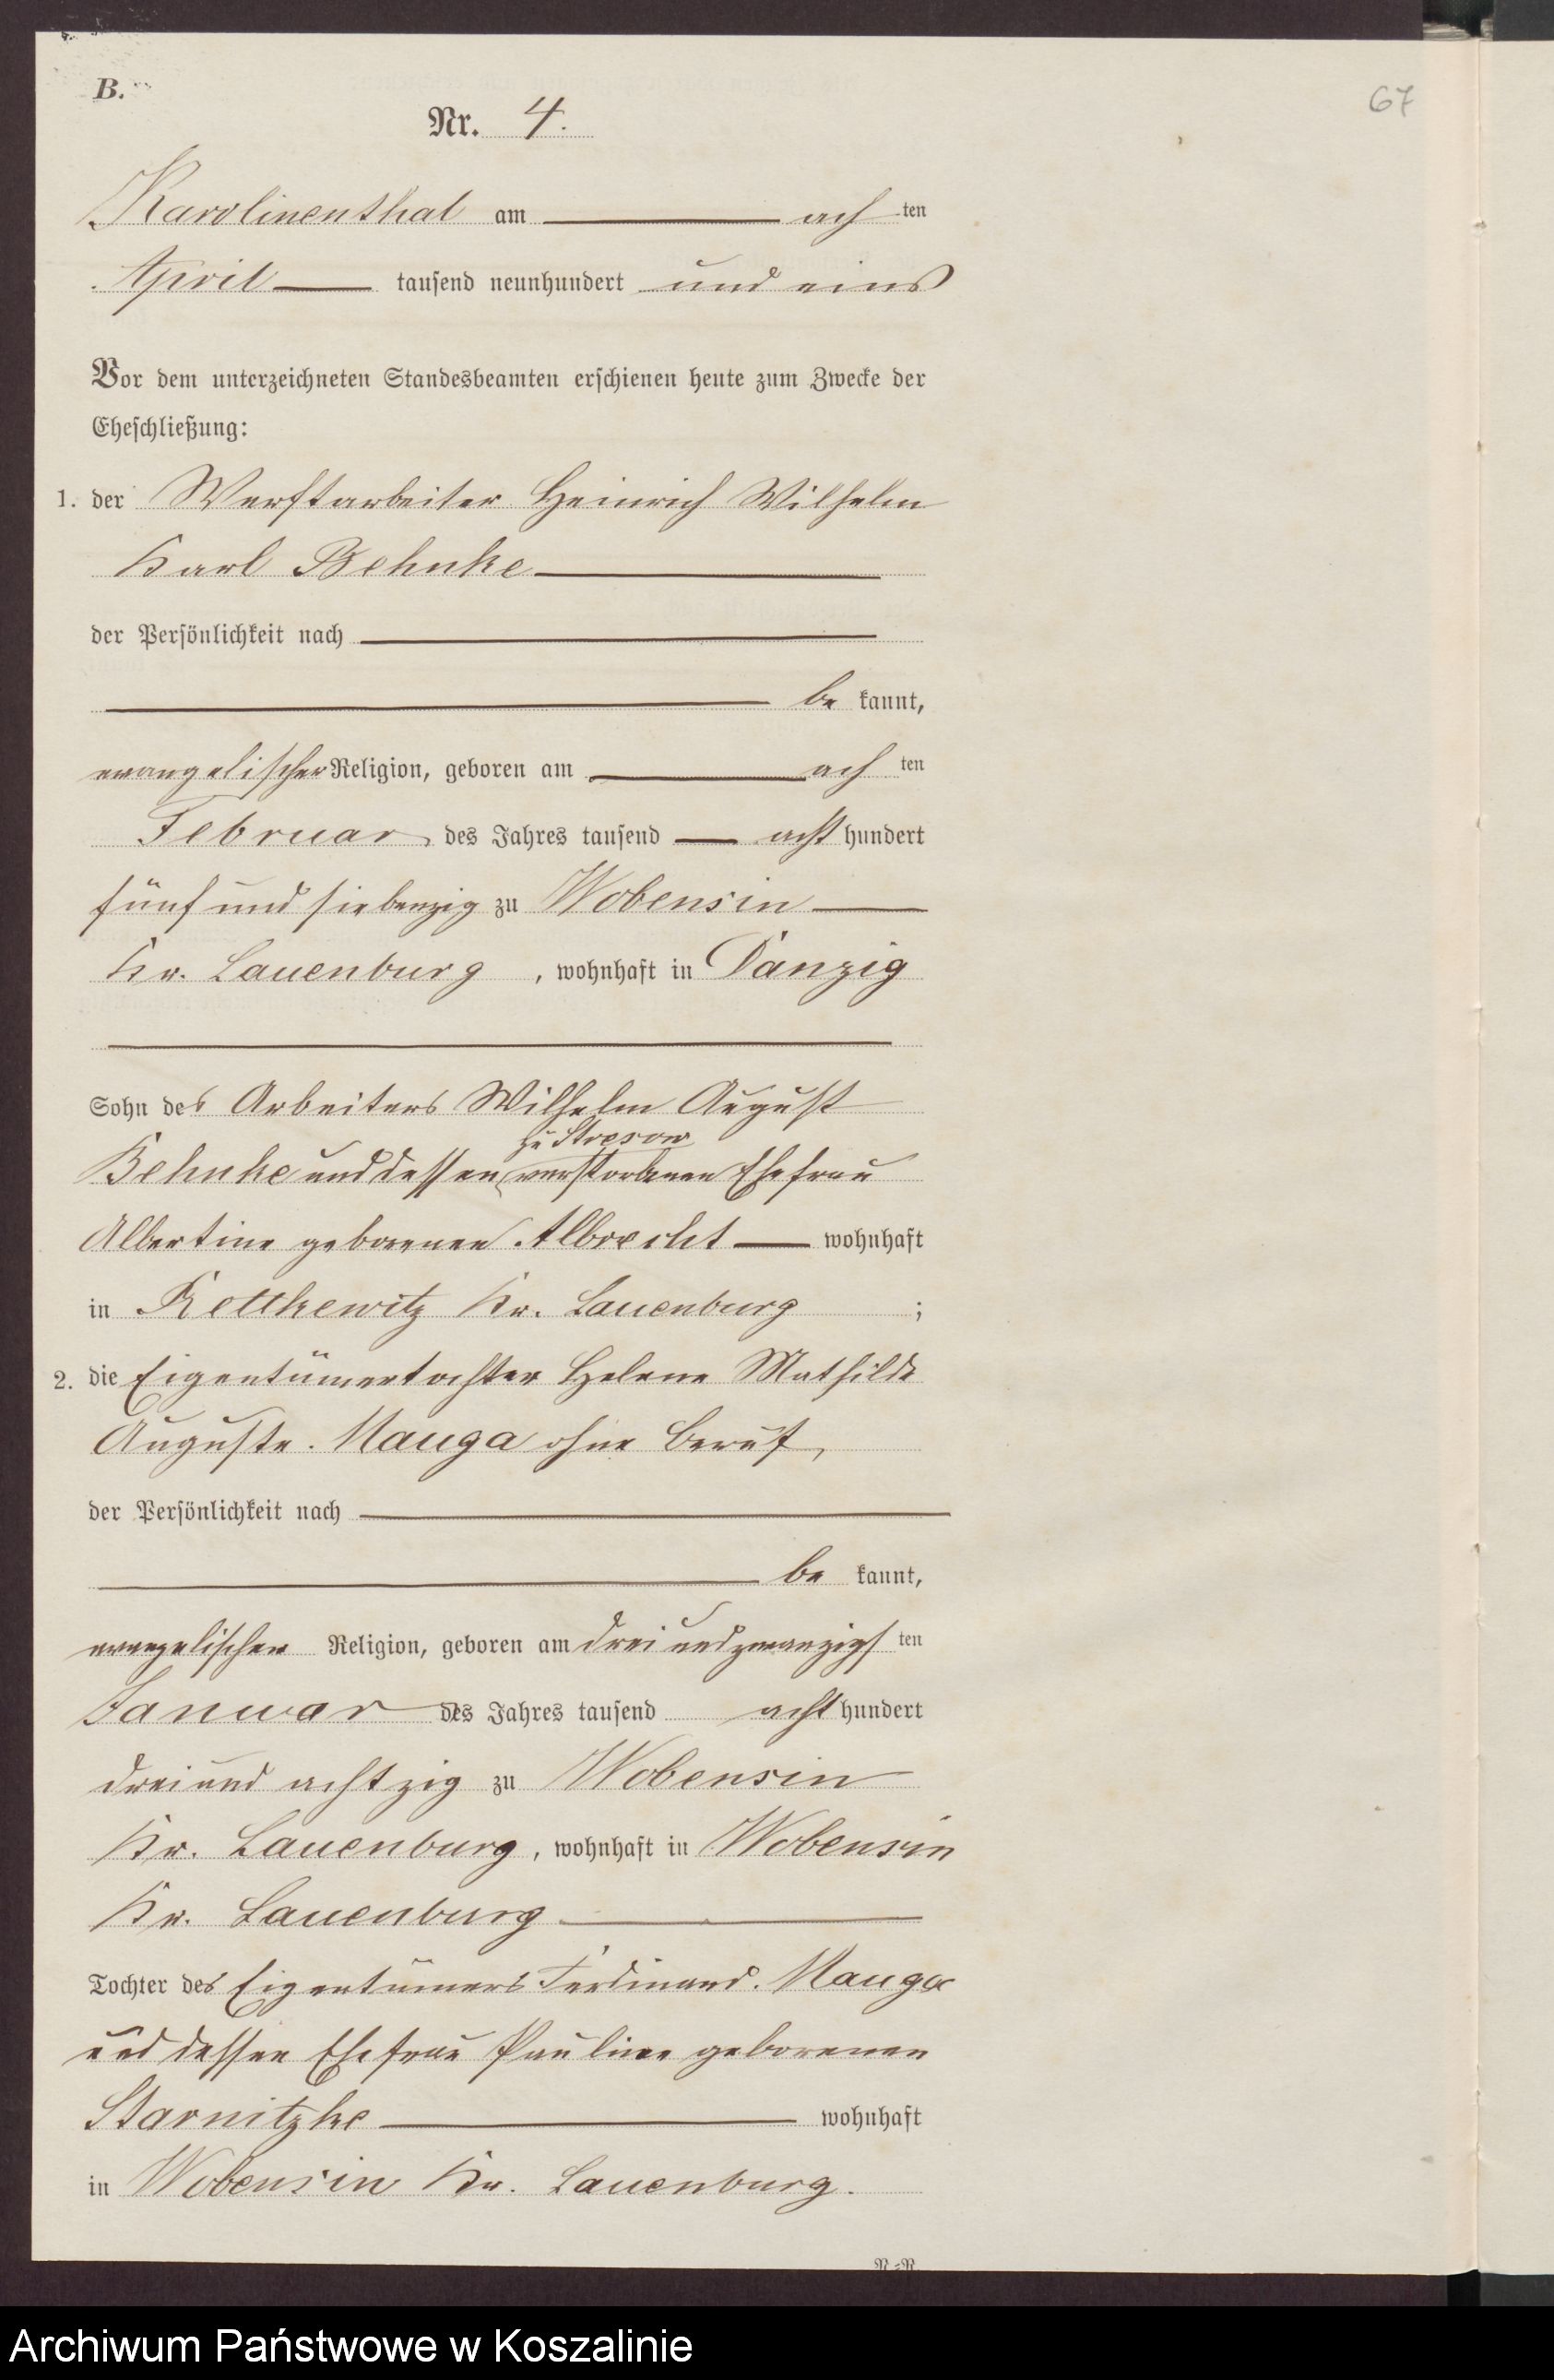 B.
67
Nr. 4.
Karolinenthal am ach ten
April tausend neunhundert und eins
Vor dem unterzeichneten Standesbeamten erschienen heute zum Zwecke der
Eheschließung:
1. der Werftarbeiter Heinrich Wilhelm
Karl Behnke
der Persönlichkeit nach
be kannt,
evangelischer Religion, geboren am ach ten
Februar des Jahres tausend acht hundert
fünf und siebenzig zu Wobensin
Kr. Lauenburg, wohnhaft in Danzig
Sohn des Arbeiters Wilhelm August
zu Stresow
Behnke und dessen verstorbenen Ehefrau
Albertine geborenen Albrecht wohnhaft
in Rettkewitz Kr. Lauenburg ;
2. die Eigentümertochter Helene Mathilde
Auguste Mauga ohne Beruf,
der Persönlichkeit nach
be kannt,
evangelischer Religion, geboren am drei und zwanzigs ten
Januar des Jahres tausend acht hundert
drei und achtzig zu Wobensin
Kr. Lauenburg, wohnhaft in Wobensin
Kr. Lauenburg
Tochter des Eigentümers Ferdinand Mauga
und dessen Ehefrau Pauline geborenen
Starnitzke wohnhaft
in Wobensin Kr. Lauenburg.
Archiwum Państwowe w Koszalinie